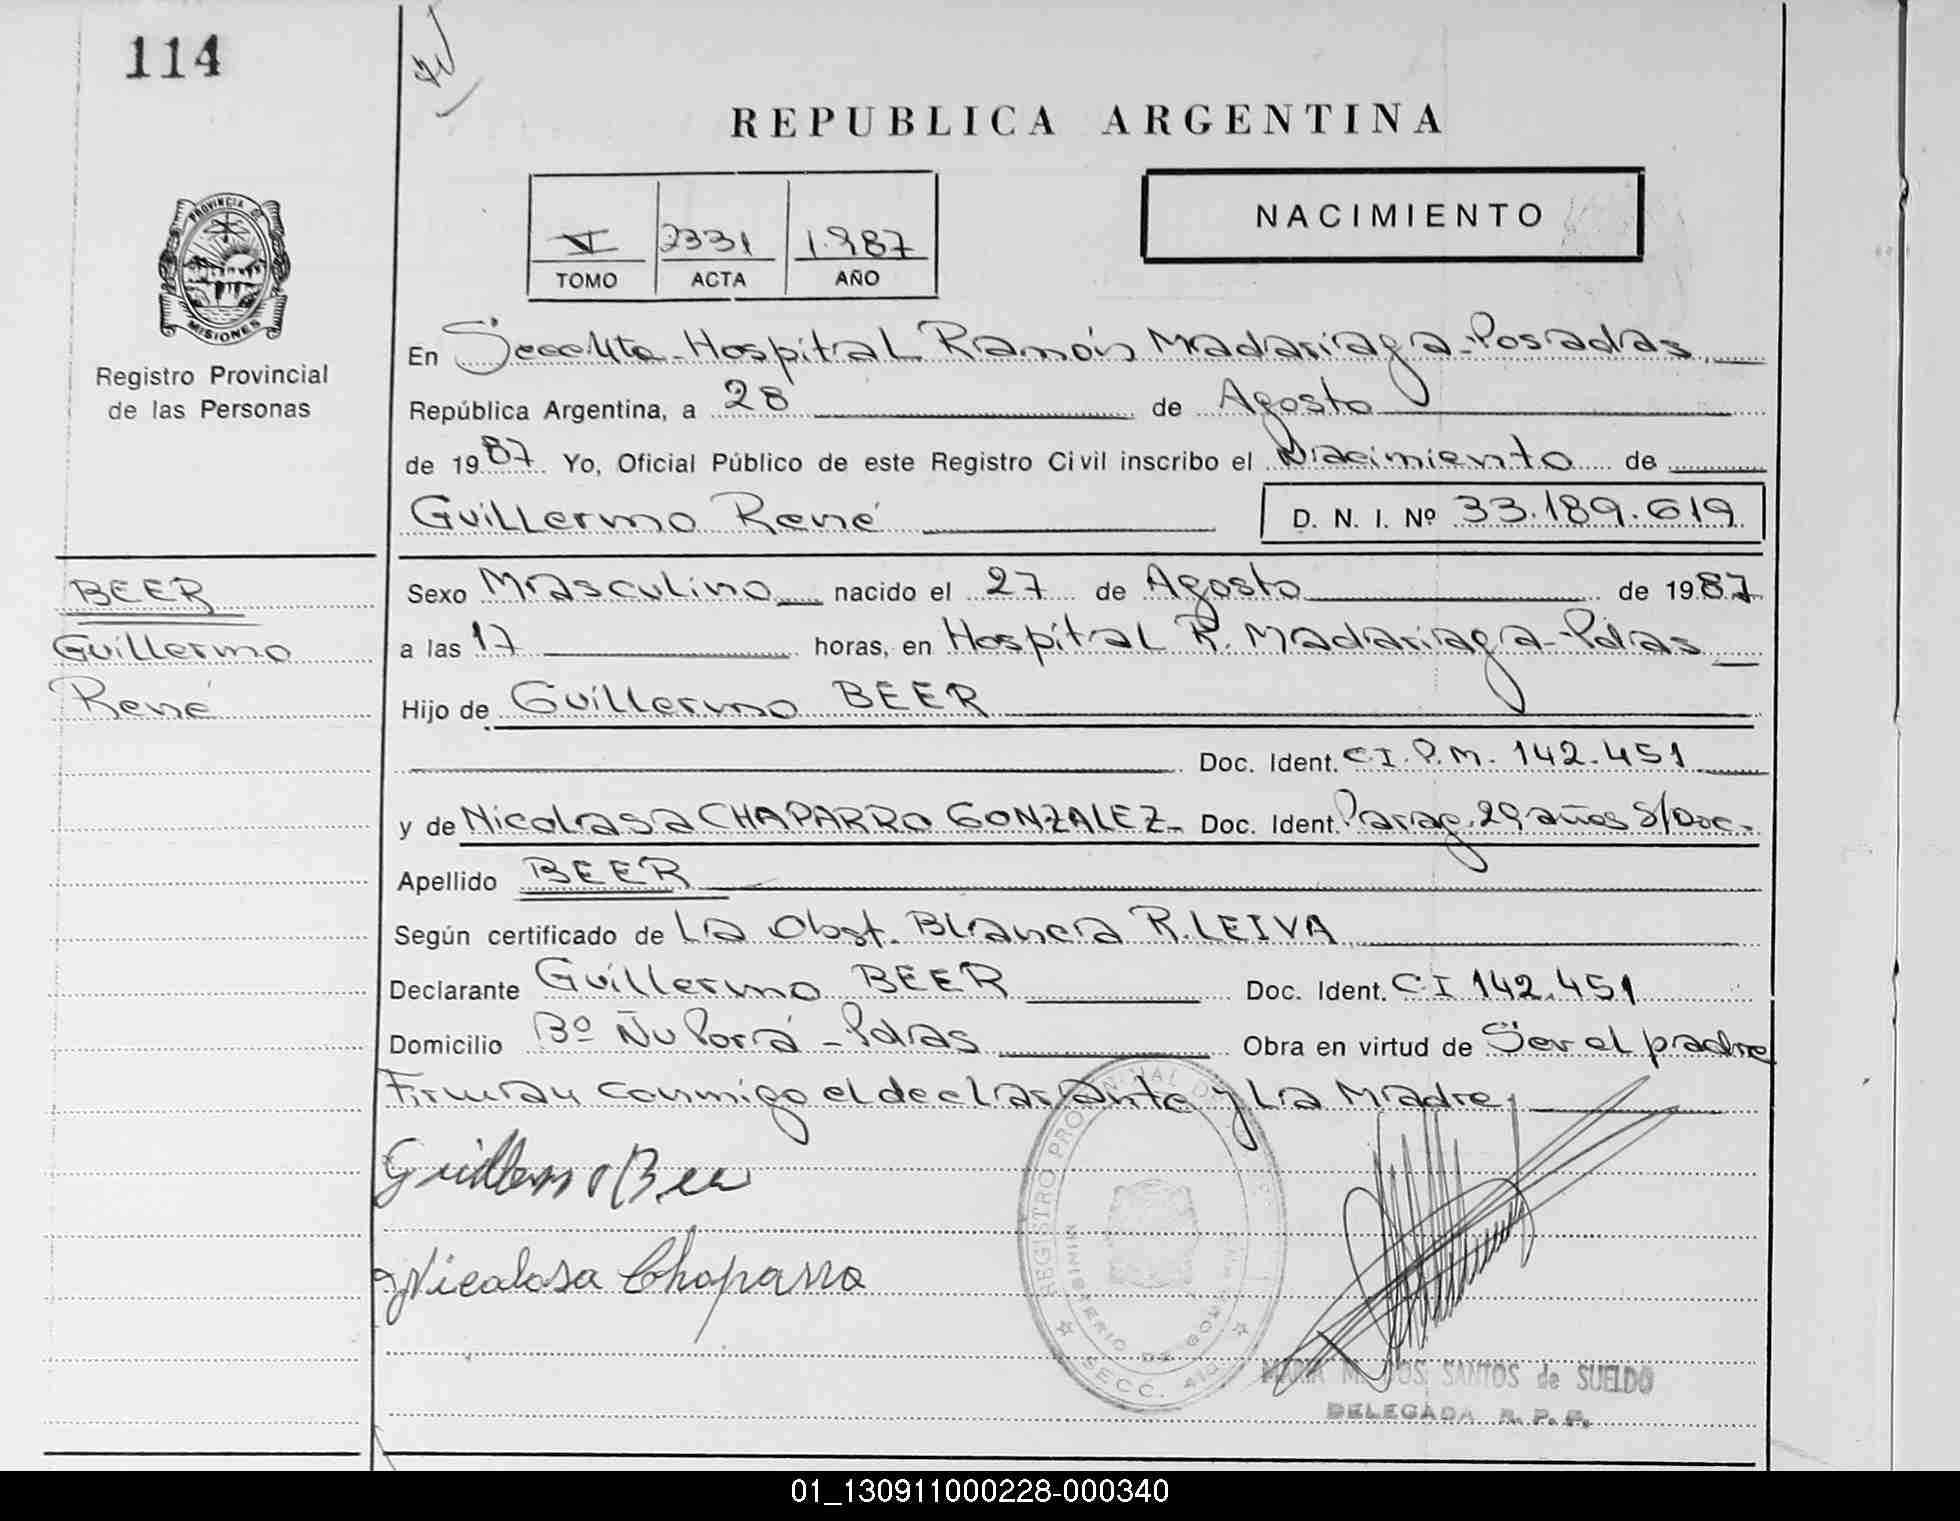 114
REPUBLICA ARGENTINA
NACIMIENTO
VI 2331 1.987
TOMO ACTA AÑO
PROVINCIA DE
MISIONES
Registro Provincial
de las Personas
En Secc.4ta-Hospital Ramón Madariaga-Posadas
República Argentina, a 28 de Agosto
de 1987 Yo, Oficial Público de este Registro Civil inscribo el Nacimiento de
Guillermo René D. N. I. Nº 33.189.619
BEER
Guillermo
René
Sexo Masculino nacido el 27 de Agosto de 1987
a las 17 horas, en Hospital R. Madariaga-Pdas
Hijo de Guillermo BEER
Doc. Ident. C.I.P.M. 142.451
y de Nicolasa CHAPARRO GONZALEZ- Doc. Ident. Parag. 29 años S/Doc.-
Apellido BEER
Según certificado de La Obst. Blanca R. LEIVA
Declarante Guillermo BEER Doc. Ident. CI 142.451
Domicilio Bº Ñu Porá - Pdas Obra en virtud de Ser el padre
Firman conmigo el declarante y La Madre
Guillermo Beer
Nicolasa Chaparro
REGISTRO PROVINCIAL DE
MINISTERIO DE GOBIERNO
SECC. 4ta
MARIA M. DOS SANTOS de SUELDO
DELEGADA R. P. P.
01_130911000228-000340